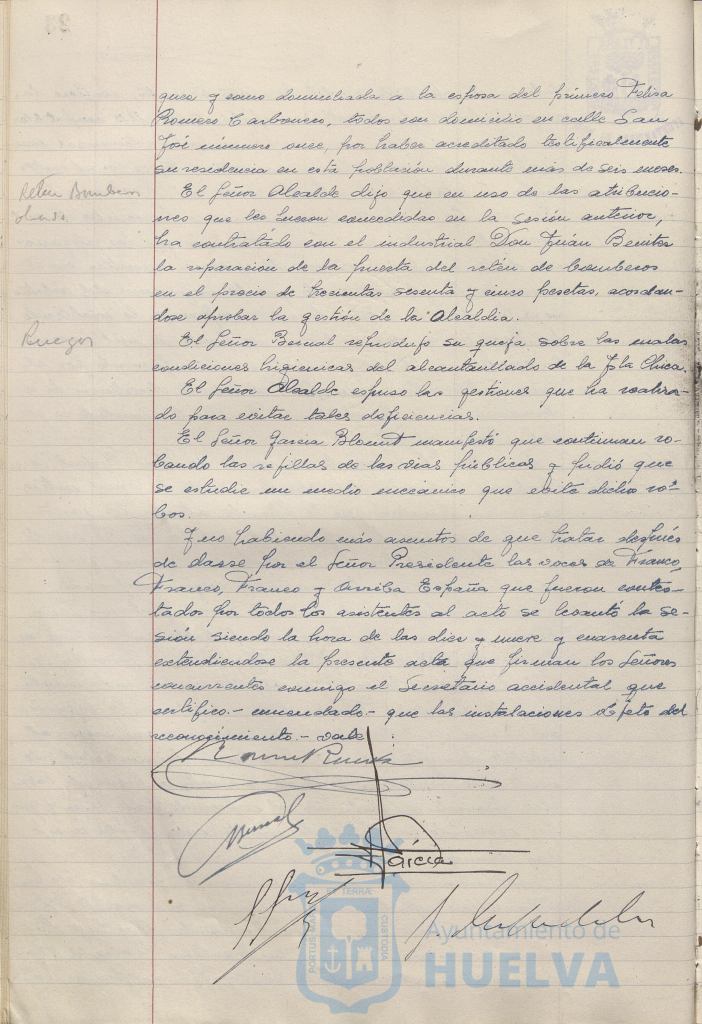 quez y como domiciliada a la esposa del primero Felisa
Romero Carbonero, todos con domicilio en calle San
José número once, por haber acreditado testificalmente
su residencia en esta población durante más de seis meses.
Reten Bomberos
El Señor Alcalde dijo que en uso de las atribucio-
nes que les fueron concedidas en la sesión anterior,
ha contratado con el industrial Don Juán Benitez
la reparación de la puerta del retén de bomberos
en el precio de trecientas sesenta y cinco pesetas, acordan-
dose aprobar la gestión de la Alcaldia.
Ruegos
El Señor Bernal reprodujo su queja sobre las malas
condiciones higienicas del alcantarillado de la Isla Chica.
El Señor Alcalde espuso las gestiones que ha realiza-
do para evitar tales deficiencias.
El Señor Garcia manifestó que continuan ro-
bando las rejillas de las vias públicas y pidió que
se estudie un medio mecánico que evite dichos ro-
bos.
Y no habiendo más asuntos de que tratar después
de darse por el Señor Presidente las voces de Franco,
Franco, Franco y Arriba España que fueron contes-
tados por todos los asistentes al acto se levantó la se-
sión siendo la hora de las diez y nueve y cuarenta
extendiendose la presente acta que firman los Señores
concurrentes conmigo el Secretario accidental que
certifico.- enmendado.- que las instalaciones objeto del
reconocimiento.- vale.
Bernal
García
PORTUS MARIS ET TERRÆ CUSTODIA
Ayuntamiento de
HUELVA